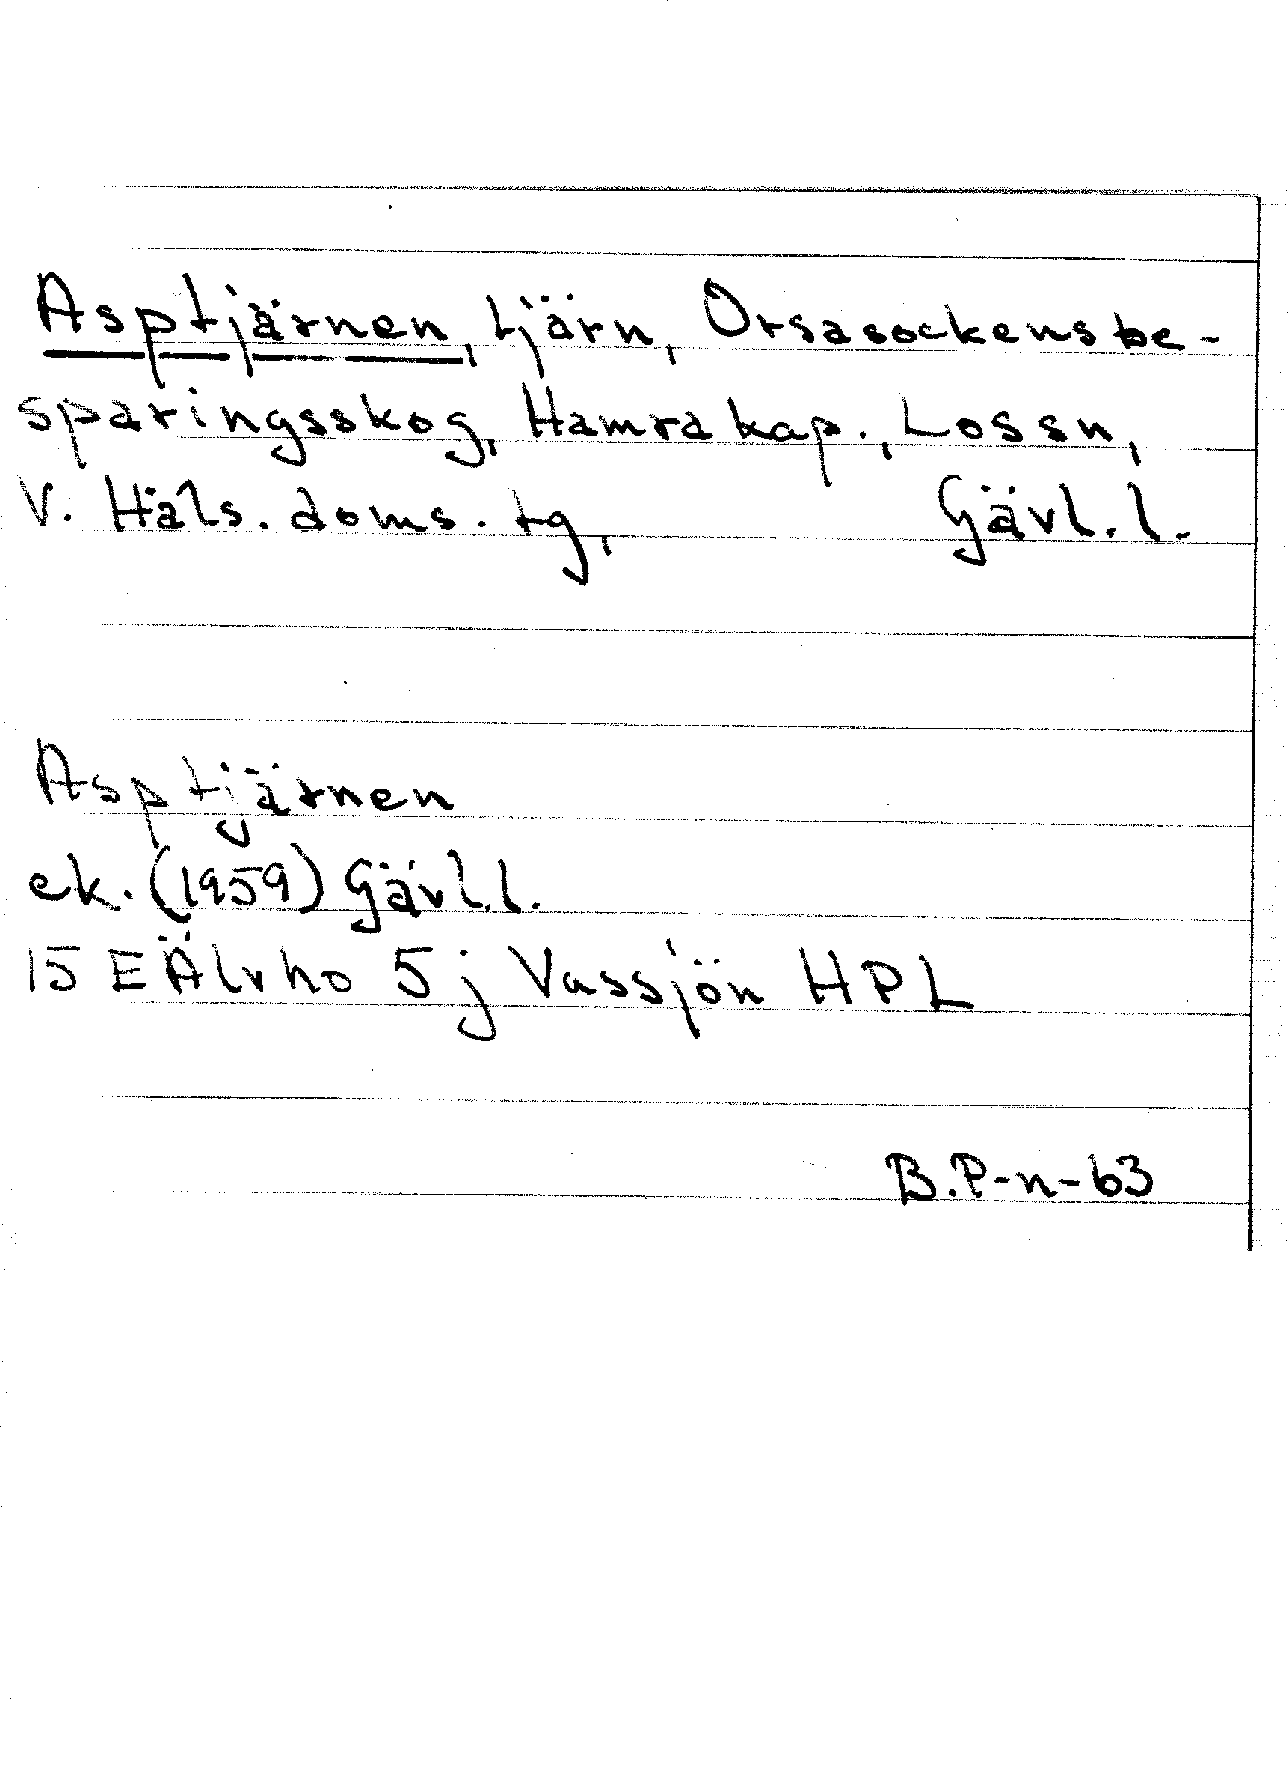 Asptjärnen, tjärn, Orsasockensbe-
sparingsskog, Hamra kap., Lossn,
V. Häls. doms. tg, Gävl. l.
Asptjärnen
ek. (1959) Gävl. l.
15 E Älvho 5 j Vassjön HPL
B.P-n-63